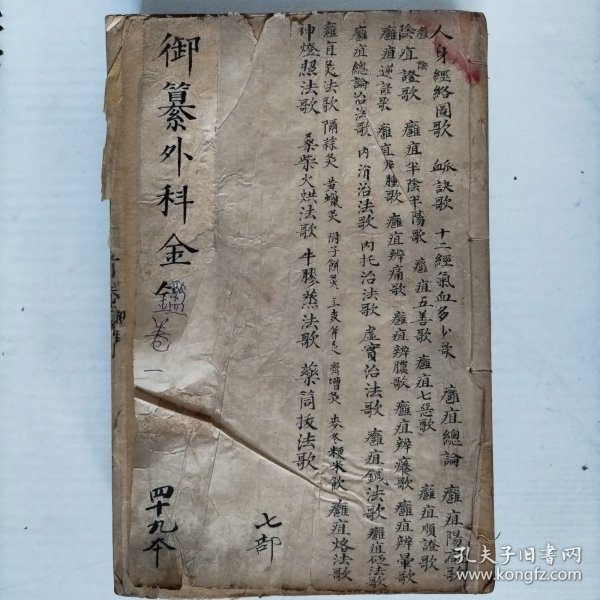 人身經絡圖歌 血訣歌 十二經氣血多少歌 癰疽總論 癰疽陽
陰疽證歌 癰疽半陰半陽歌 癰疽五善歌 癰疽七惡歌 癰疽順證歌
癰疽逆證歌 癰疽辨腫歌 癰疽辨痛歌 癰疽辨膿歌 癰疽辨癢歌 癰疽辨暈歌
癰疽總論治法歌 內消治法歌 內托治法歌 虛實治法歌 癰疽鍼法歌 癰疽砭法歌
癰疽灸法歌 隔蒜灸 黃蠟灸 附子餅灸 麥冬粳米飲 癰疽烙法歌
神燈照法歌 桑柴火烘法歌 牛膠蒸法歌 藥筒拔法歌
七部
御纂外科金鑑卷一
四十九本
孔夫子旧書网
www.kongfz.com